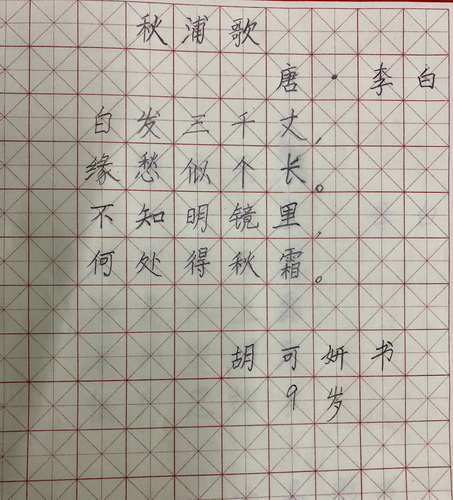 秋浦歌
唐·李白
白发三千丈,
缘愁似个长。
不知明镜里,
何处得秋霜。
胡可妍书
9岁